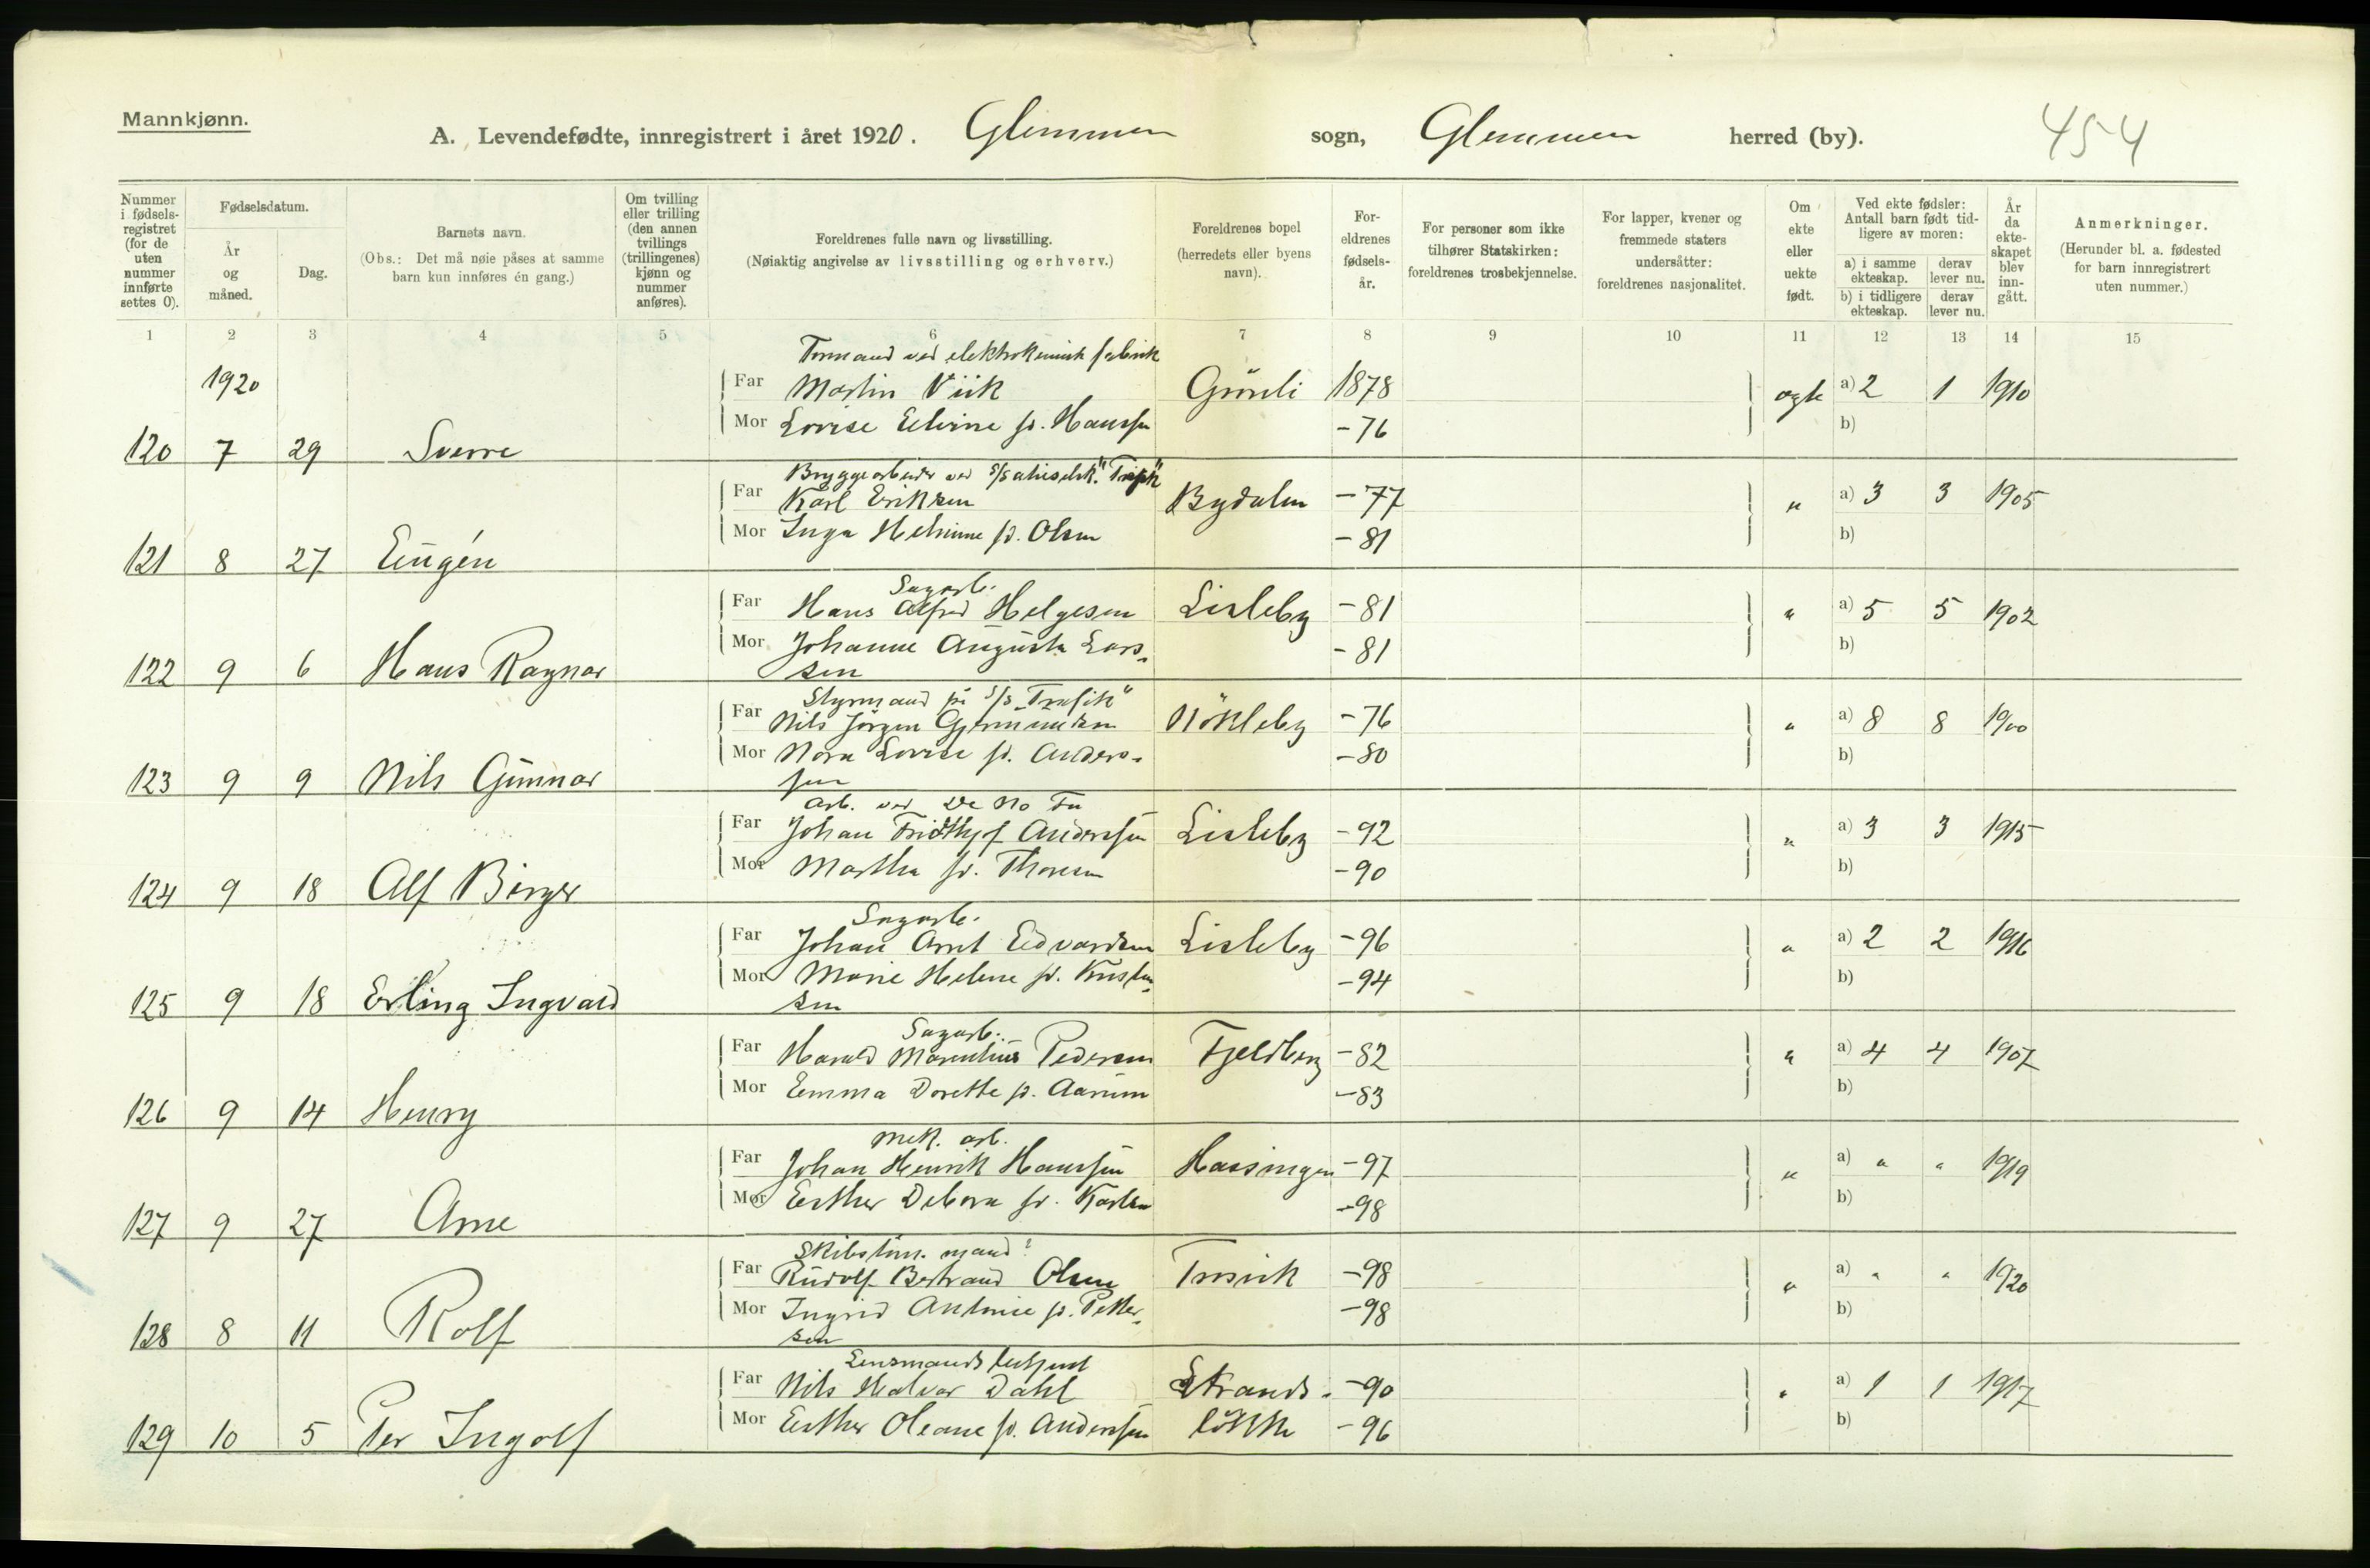 Mannkjønn.
A. Levendefødte, innregistrert i året 1920. Glemmen sogn, Glemmen herred (by). 454
Nummer i fødsels-registret (for de uten nummer innførte settes 0).
Fødselsdatum.
År og måned.
Dag.
Barnets navn.
(Obs.: Det må nøie påses at samme barn kun innføres én gang.)
Om tvilling eller trilling (den annen tvillings (trillingenes) kjønn og nummer anføres).
Foreldrenes fulle navn og livsstilling.
(Nøiaktig angivelse av livsstilling og erhverv.)
Foreldrenes bopel
(herredets eller byens navn).
For-eldrenes fødsels-år.
For personer som ikke tilhører Statskirken: foreldrenes trosbekjennelse.
For lapper, kvener og fremmede staters undersåtter: foreldrenes nasjonalitet.
Om ekte eller uekte født.
Ved ekte fødsler: Antall barn født tid-ligere av moren:
a) i samme ekteskap.
derav lever nu.
b) i tidligere ekteskap.
derav lever nu.
År da ekte-skapet blev inn-gått.
Anmerkninger.
(Herunder bl. a. fødested for barn innregistrert uten nummer.)
1 2 3 4 5 6 7 8 9 10 11 12 13 14 15
Formand ved elektrokemisk fabrik
1920 Far Martin Viik Grønli 1878 ægte a) 2 1 1910
Mor Lovise Elvine f. Hanssen -76 b)
120 7 29 Sverre
Bryggearbeider ved "Trafik"
Far Karl Eriksen Bydalen -77 " a) 3 3 1905
Mor Inga Helmine f. Olsen -81 b)
121 8 27 Eugén
Sagarb.
Far Hans Alfred Helgesen Lisleby -81 " a) 5 5 1902
Mor Johanne Augusta Lars- -81 b)
122 9 6 Hans Ragnar sen
Styrmand på S/S "Trafik"
Far Nils Jørgen Gjermundsen Nökleby -76 " a) 8 8 1900
Mor Nora Lovise f. Anders- -80 b)
123 9 9 Nils Gunnar sen
Arb. ved De No Fa
Far Johan Fridthjof Anderssen Lisleby -92 " a) 3 3 1915
Mor Martha f. Thoresen -90 b)
124 9 18 Alf Birger
Sagarb.
Far Johan Arnt Edvardsen Lisleby -96 " a) 2 2 1916
Mor Marie Helene f. Kristen- -94 b)
125 9 18 Erling Ingvald sen
Sagarb.
Far Harald Marentius Pedersen Fjeldberg -82 " a) 4 4 1907
Mor Emma Dorette f. Aarum -83 b)
126 9 14 Henry
Mek. arb.
Far Johan Henrik Hanssen Hassingen -97 " a) " " 1919
Mor Esther Debora f. Karlsen -98 b)
127 9 27 Arne
Skibstøm. mand?
Far Rudolf Bertrand Olsen Trosvik -98 " a) " " 1920
Mor Ingrid Antonie f. Petter- -98 b)
128 8 11 Rolf sen
Lensmandsbetjent
Far Nils Halvor Dahl Strands- -90 " a) 1 1 1917
Mor Esther Oleane f. Anderssen løkke -96 b)
129 10 5 Per Ingolf